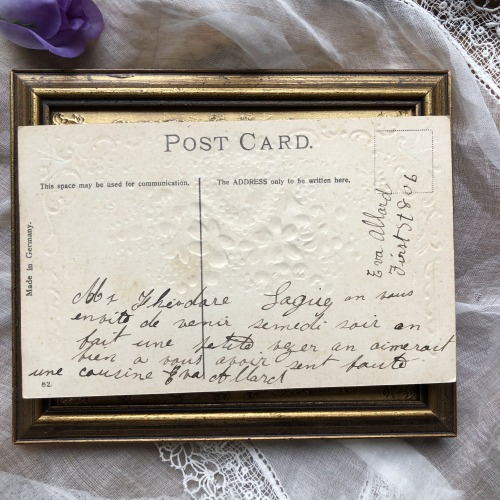 POST CARD.
This space may be used for communication.
The ADDRESS only to be written here.
Made in Germany.
Eva Allard
First St 806
Mr Theodore Lagug on vous
envite de venir semedi soir on
fait une petite vezer on aimerait
bien a vous avoir sent faute
une cousine Eva Allard
52.